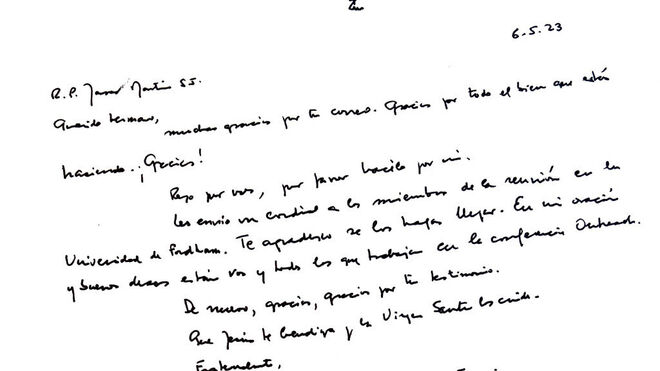 6.5.23
R.P. James Martin SJ.
Querido hermano,
muchas gracias por tu correo. Gracias por todo el bien que estás
haciendo. ¡Gracias!
Rezo por vos, por favor hacelo por mí.
Les envío un cordial a los miembros de la reunión en la
Universidad de Fordham. Te agradezco se los hagas llegar. En mi oración
y buenos deseos están vos y todos los que trabajan en la conferencia Outreach.
De nuevo, gracias, gracias por tu testimonio.
Que Jesús te bendiga y la Virgen Santa los cuide.
Fraternalmente,